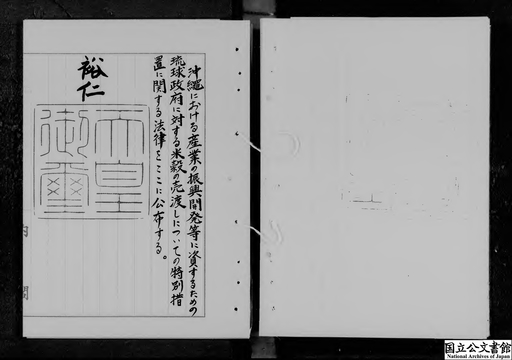 沖縄における産業の振興開発等に資するための
琉球政府に対する米穀の売渡しについての特別措
置に関する法律をここに公布する。
裕仁
天皇
御璽
国立公文書館
National Archives of Japan